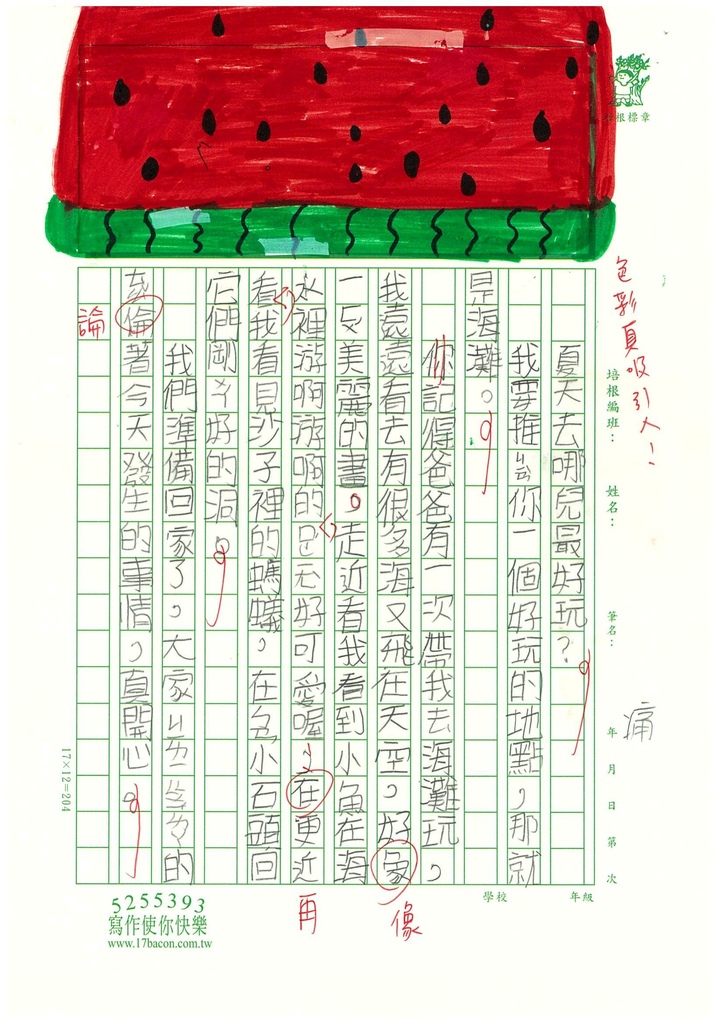 色彩真吸引人！
培根標章
培根編班：
姓名：
筆名：
年 月 日 第 次
痛
學校
年級
夏天去哪兒最好玩？
我要推ㄐㄧㄢˋ你一個好玩的地點，那就
是海灘。
你記得爸爸有一次帶我去海灘玩，
我遠遠看去有很多海又飛在天空，好象
一反美麗的畫。走近看我看到小魚在海
水裡游啊游啊的
好可愛喔，在更近
看我看見沙子裡的螞蟻，在
小石頭回
它們剛ㄆ好的洞。
我們準備回家了，大家
的
倫著今天發生的事情，真開心。
論
像
再
17×12=204
5255393
寫作使你快樂
www.17bacon.com.tw